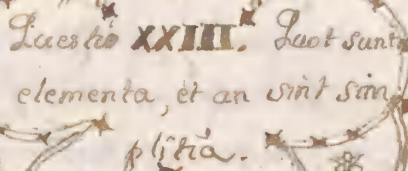 Quaestio XXIII. Quot sunt
elementa, et an sint sim
plitia.